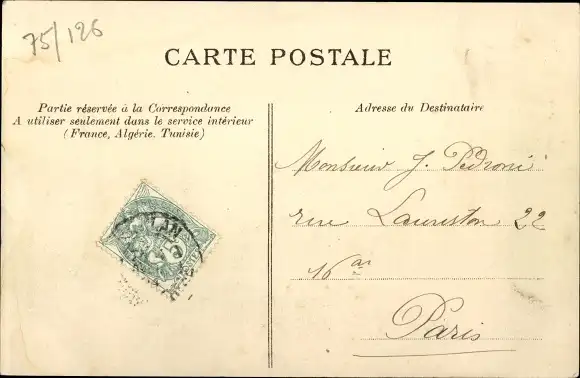 75/126
CARTE POSTALE
Partie réservée à la Correspondance
A utiliser seulement dans le service intérieur
(France, Algérie. Tunisie)
Adresse du Destinataire
Monsieur J. Pedroni
rue Lauriston 22
16 ar
Paris